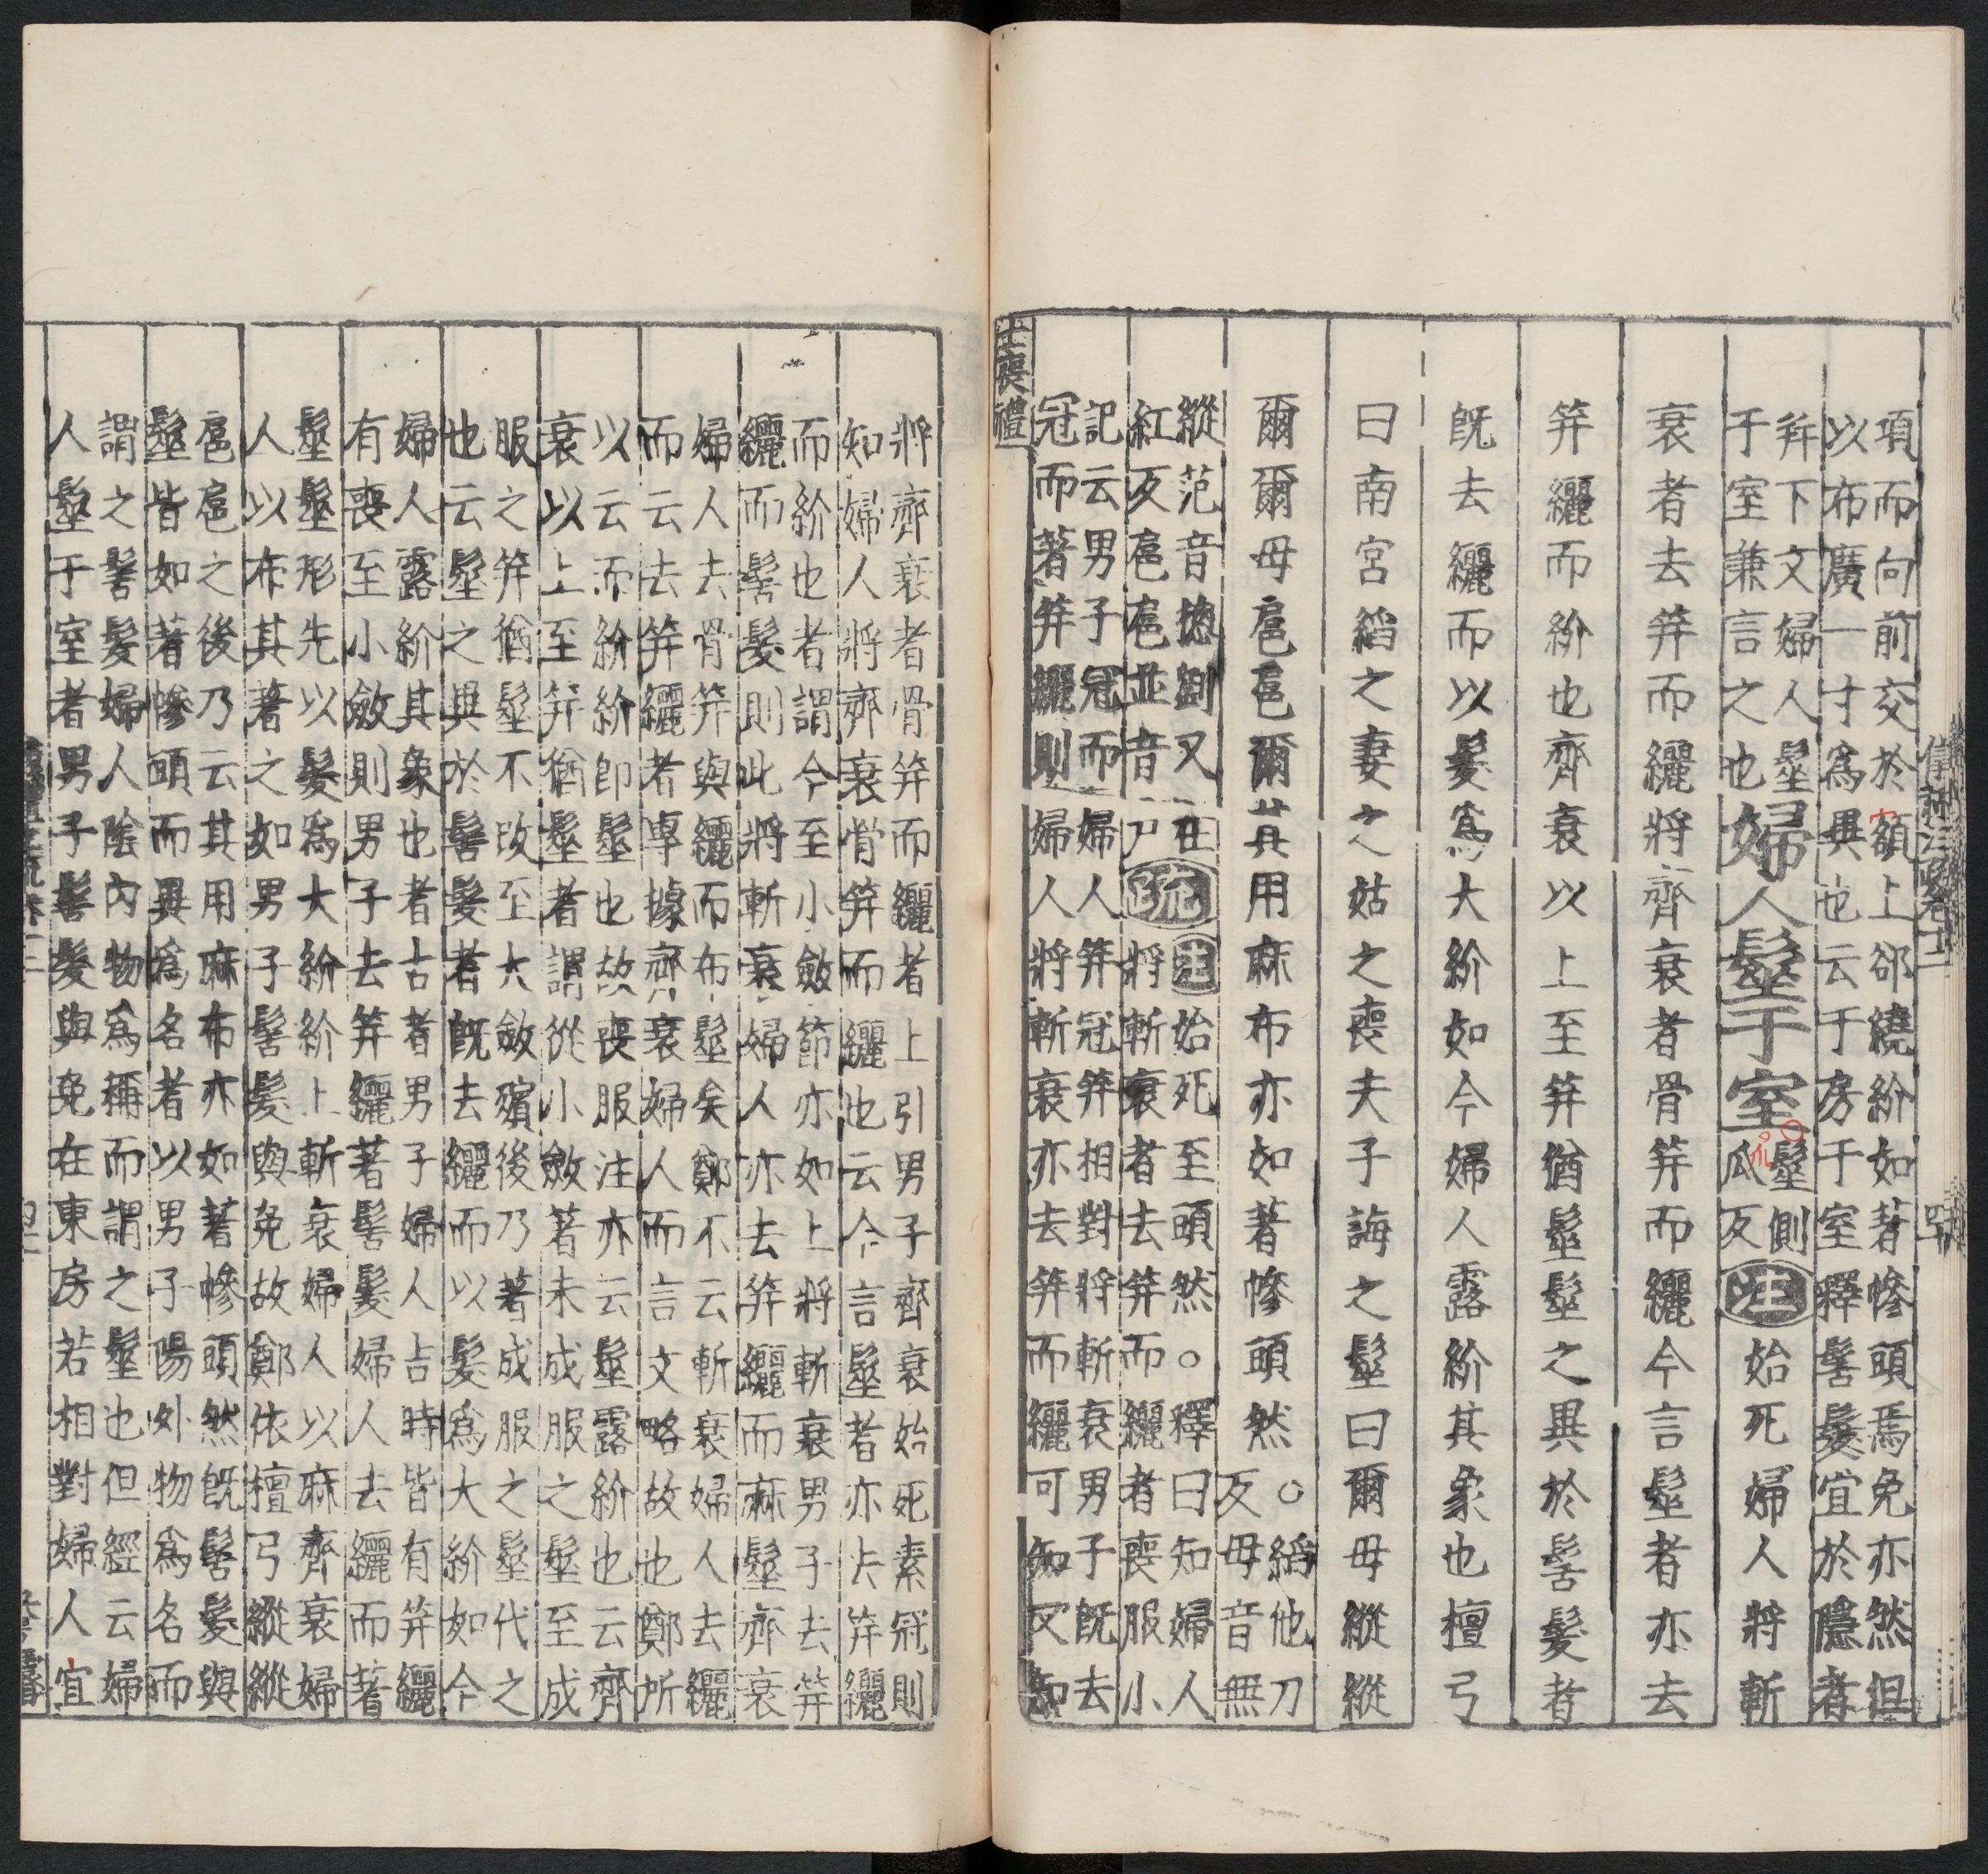 項而向前交於額上郤繞紒如著幓頭焉免亦然但
以布廣一寸爲異也云于房于室釋髻髮宜於隱者
并下文婦人髽
于室兼言之也
婦人髽于室
髽側
瓜反
注
始死婦人將斬
衰者去筓而纚將齊衰者骨筓而纚今言髽者亦去
筓纚而紒也齊衰以上至筓猶髽髽之異於髻髮者
旣去纚而以髮爲大紒如今婦人露紒其象也檀弓
曰南宮縚之妻之姑之喪夫子誨之髽曰爾母縱縱
爾爾母扈扈爾其用麻布亦如著幓頭然
○縚他刀
反毋音無
縱范音摠劉又
紅反扈扈並音戶
疏
注始死至頭然○釋曰知婦人
將斬衰者去筓而纚者喪服小
記云男子冠而婦人筓冠筓相對將斬衰男子旣去
冠而著筓纚則婦人將斬衰亦去筓而纚可知又知
士喪禮
將齊衰者骨筓而纚者上引男子齊衰始死素冠則
知婦人將齊衰骨筓而纚也云今言髽者亦去筓纚
而紒也者謂今至小斂節亦如上將斬衰男子去筓
纚而髻髮則此將斬衰婦人亦去筓纚而麻髽齊衰
婦人去骨筓與纚而布髽矣鄭不云斬衰婦人去纚
而云去筓纚者專據齊衰婦人而言文略故也鄭所
以云而紒紒卽髽也故喪服注亦云髽露紒也云齊
衰以上至筓猶髽者謂從小斂著未成服之髽至成
服之筓猶髽不改至大斂殯後乃著成服之髽代之
也云髽之異於髻髮者旣去纚而以髮爲大紒如今
婦人露紒其象也者古者男子婦人吉時皆有筓纚
有喪至小斂則男子去筓纚著髻髮婦人去纚而著
髽髽形先以髮爲大紒紒上斬衰婦人以麻齊衰婦
人以布其著之如男子髻髮與免故鄭依檀弓縱縱
扈扈之後乃云其用麻布亦如著幓頭然旣髻髮與
髽皆如著幓頭而異爲名者以男子陽外物爲名而
謂之髻髮婦人陰內物爲稱而謂之髽也但經云婦
人髽于室者男子髻髮與免在東房若相對婦人宜